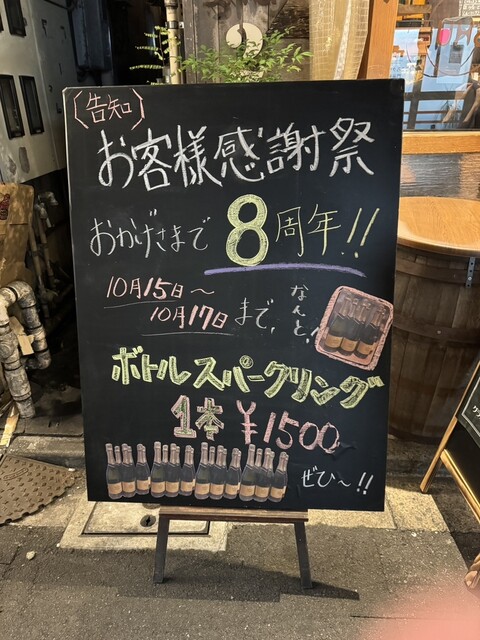 (告知)
お客様感謝祭
おかげさまで 8周年!!
10月15日〜
10月17日まで、
なんと、
ボトルスパークリング
1本 ¥1500
ぜひ〜!!